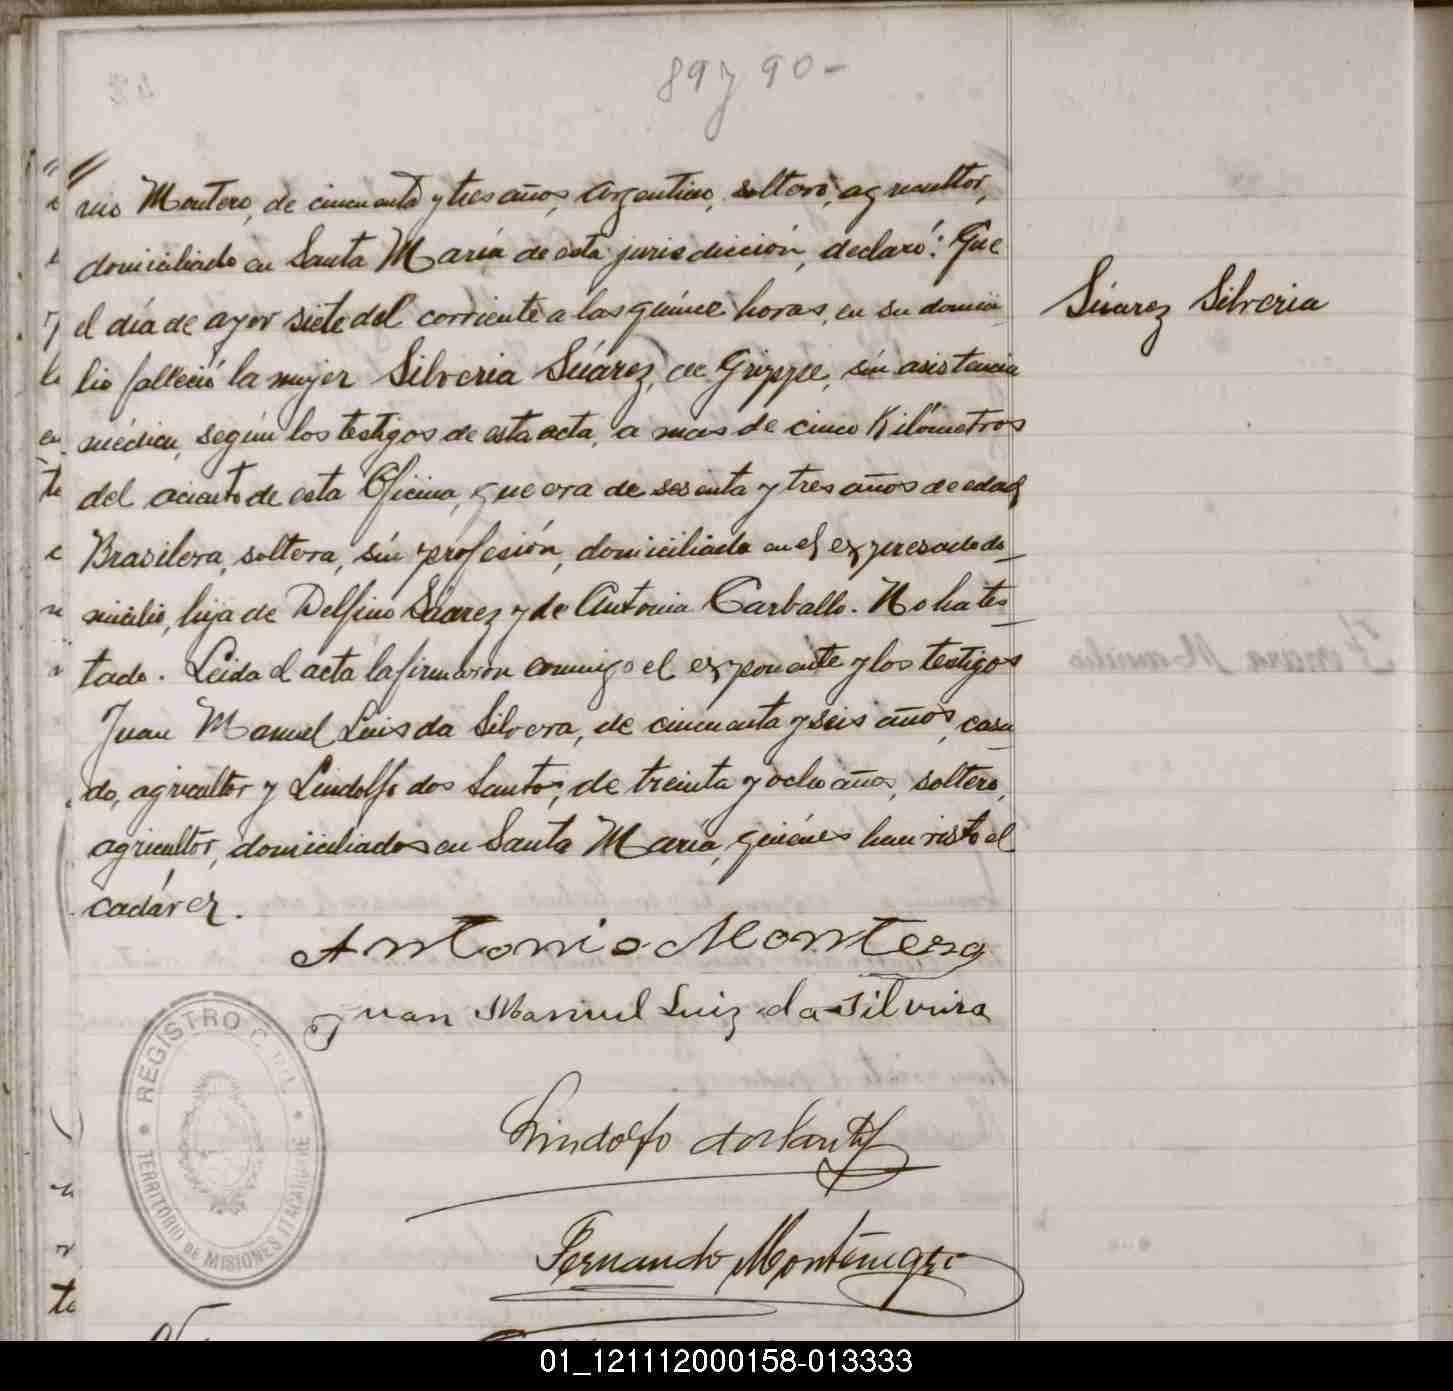 89 y 90-
nio Montero, de cincuenta y tres años, argentino, soltero, agricultor,
domiciliado en Santa María de esta jurisdicción, declaró: Que
el día de ayer siete del corriente a las quince horas, en su domici-
Súarez Silveria
lio falleció la mujer Silveria Súarez, de Grippe, sin asistencia
médica, según los testigos de esta acta, a mas de cinco Kilómetros
del aciento de esta Oficina, que era de sesenta y tres años de edad,
Brasilera, soltera, sin profesión, domiciliada en el expresado do-
micilio, hija de Delfino Súarez y de Antonia Carballo. No ha tes-
tado. Leida el acta la firmaron conmigo el exponente y los testigos
Juan Manuel Luis da Silvera, de cincuenta y seis años, casa-
do, agricultor y Lindolfo dos Santos, de treinta y ocho años, soltero,
agricultor, domiciliados en Santa María, quiénes han visto el
cadáver.
Antonio Montero
Juan Manuel Luiz da Silveira
Lindolfo dos Santos
Fernando Montenegro
REGISTRO CIVIL
TERRITORIO DE MISIONES ITACARUARE
01_121112000158-013333